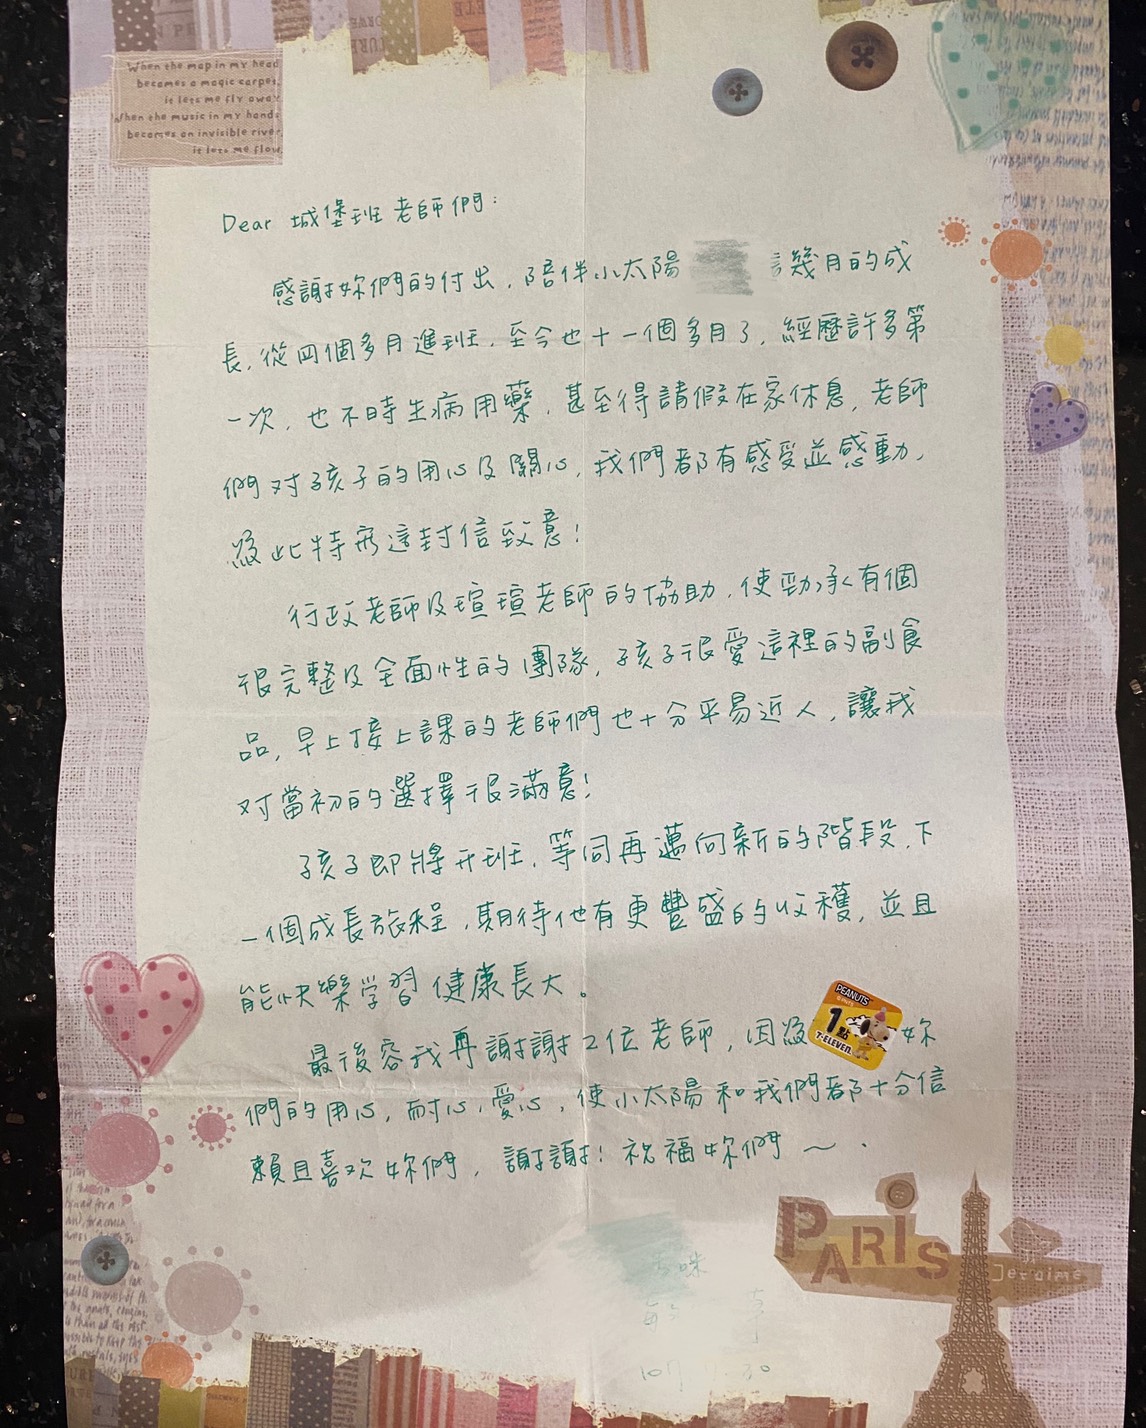 When the map in my head
becomes a magic carpet,
it lets me fly away
When the music in my hands
becomes an invisible river,
it lets me flow
Dear 城堡班老師們:
感謝妳們的付出,陪伴小太陽 幾月的成
長,從四個多月進班,至今也十一個多月了,經歷許多第
一次,也不時生病用藥,甚至得請假在家休息,老師
們对孩子的用心及關心,我們都有感受並感動,
為此特飛這封信致意!
行政老師及瑄瑄老師的協助,使勁承有個
很完整及全面性的團隊,孩子很愛這裡的副食
品,早上接上課的老師們也十分平易近人,讓我
对當初的選擇很滿意!
孩子即將升班,等同再邁向新的階段,下
一個成長旅程,期待他有更豐盛的收穫,並且
能快樂学習健康長大。
最後容我再謝謝2位老師,因為 妳
PEANUTS
1點
7-ELEVEN
們的用心,耐心,愛心,使小太陽和我們都十分信
賴且喜欢妳們,謝謝!祝福妳們~.
咪
PARIS
Je t'aime